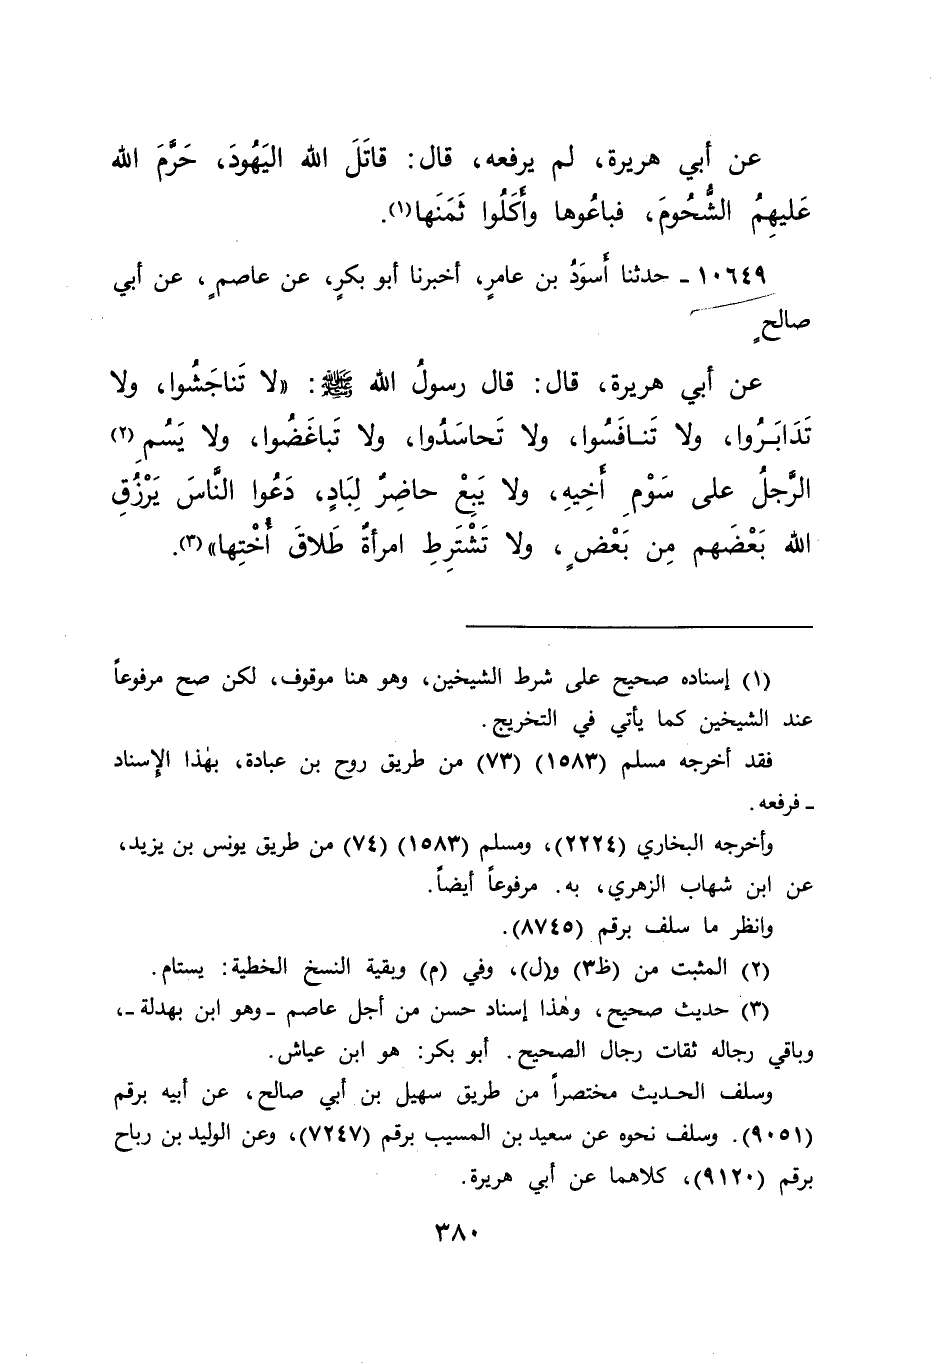 عن أبي هريرة، لم يرفعه، قال: قاتَلَ الله اليَهُودَ، حَرَّمَ الله
عَليهِمُ الشُّحُومَ، فباعُوها وأَكَلُوا ثَمَنَها(١).
١٠٦٤٩ ـ حدثنا أَسوَدُ بن عامرٍ، أخبرنا أبو بكرٍ، عن عاصمٍ، عن أبي
صالحٍ
عن أبي هريرة، قال: قال رسولُ الله ﷺ: «لا تَناجَشُوا، ولا
تَدَابَـرُوا، ولا تَنـافَسُوا، ولا تَحاسَدُوا، ولا تَباغَضُوا، ولا يَسُمِ(٢)
الرَّجلُ على سَوْمِ أَخِيهِ، ولا يَبِعْ حاضِرٌ لِبَادٍ، دَعُوا النَّاسَ يَرْزُقِ
الله بَعْضَهم مِن بَعْضٍ، ولا تَشْتَرِطِ امرأةٌ طَلاقَ أُخْتِها»(٣).
(١) إسناده صحيح على شرط الشيخين، وهو هنا موقوف، لكن صح مرفوعاً
عند الشيخين كما يأتي في التخريج.
فقد أخرجه مسلم (١٥٨٣) (٧٣) من طريق روح بن عبادة، بهٰذا الإسناد
ـ فرفعه.
وأخرجه البخاري (٢٢٢٤)، ومسلم (١٥٨٣) (٧٤) من طريق يونس بن يزيد،
عن ابن شهاب الزهري، به. مرفوعاً أيضاً.
وانظر ما سلف برقم (٨٧٤٥).
(٢) المثبت من (ظ٣) و(ل)، وفي (م) وبقية النسخ الخطية: يستام.
(٣) حديث صحيح، وهٰذا إسناد حسن من أجل عاصم ـ وهو ابن بهدلة ـ،
وباقي رجاله ثقات رجال الصحيح. أبو بكر: هو ابن عياش.
وسلف الحـديث مختصراً من طريق سهيل بن أبي صالح، عن أبيه برقم
(٩٠٥١). وسلف نحوه عن سعيد بن المسيب برقم (٧٢٤٧)، وعن الوليد بن رباح
برقم (٩١٢٠)، كلاهما عن أبي هريرة.
٣٨٠